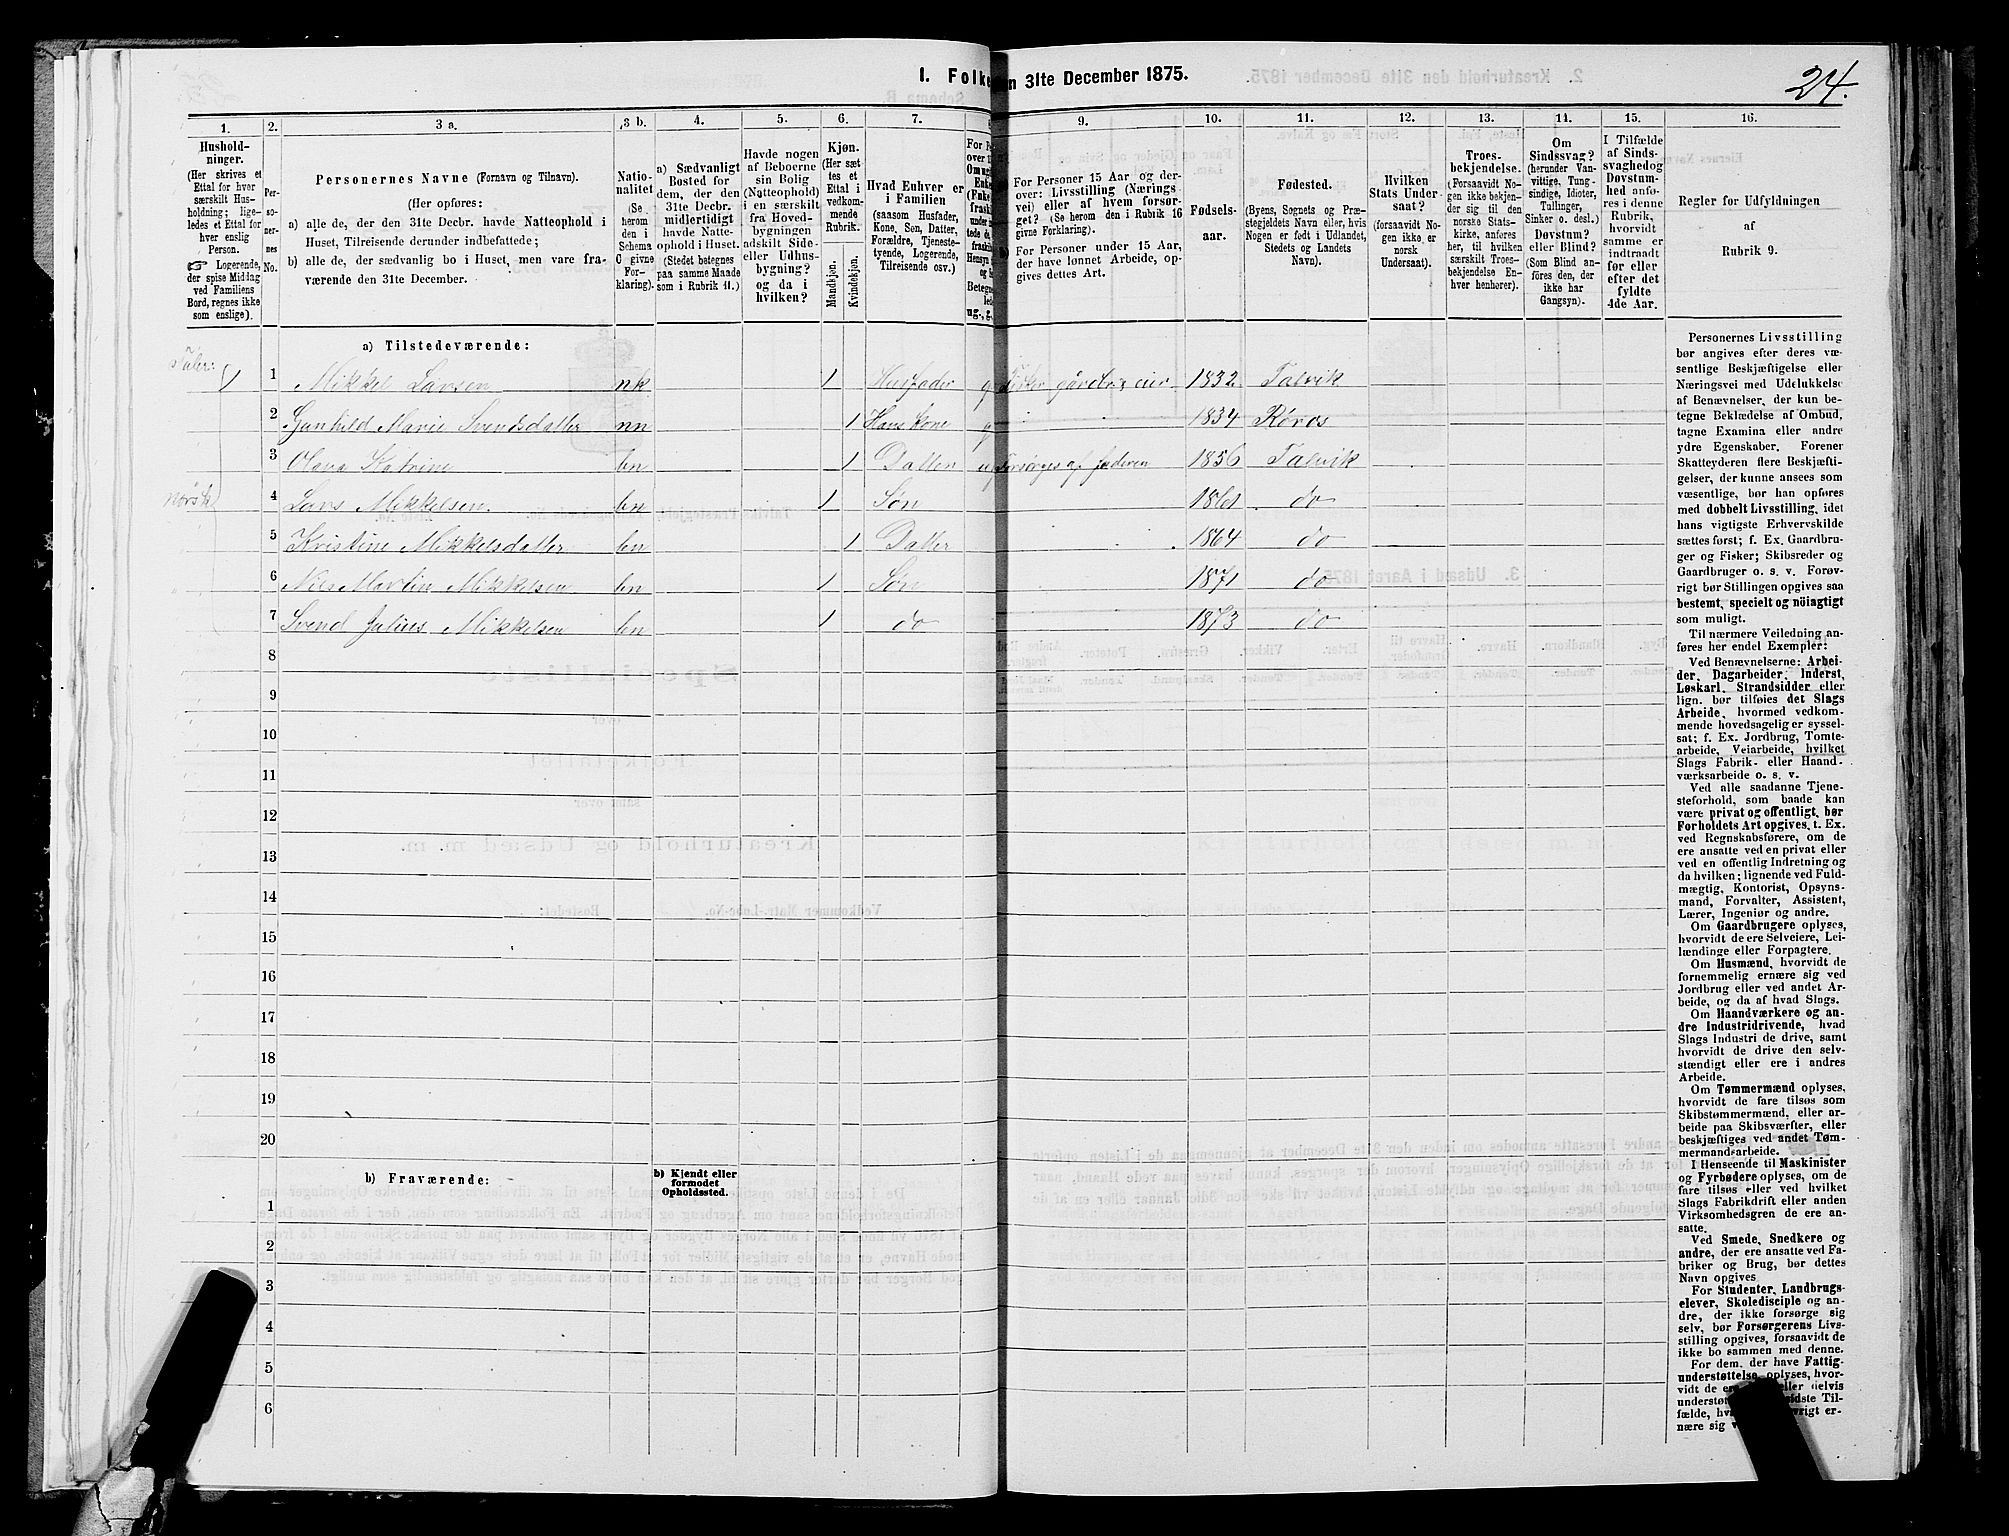 1. Folke
n 31te December 1875.
24.
1.
2.
3 a.
3 b.
4.
5.
6.
7.
8
9.
10.
11.
12.
13.
14.
15.
16.
Hushold-
ninger.
(Her skrives et
Ettal for hver
særskilt Hus-
holdning; lige-
ledes et Ettal
for hver
enslig
Person.
☞ Logerende,
der spise Middag
ved Familiens
Bord, regnes ikke
som enslige).
Per-
so-
ner-
nes
No.
Personernes Navne (Fornavn og Tilnavn).
(Her opføres:
a) alle de, der den 31te Decbr. havde Natteophold i
Huset, Tilreisende derunder indbefattede;
b) alle de, der sædvanlig bo i Huset, men vare fra-
værende den 31te December.
Natio-
nalitet
(Se
herom
den i
Schema
C givne
For-
klaring).
a) Sædvanligt
Bosted for
dem, der den
31te Decbr.
midlertidigt
havde Natte-
ophold i Huset.
(Stedet betegnes
paa samme Maade
som i Rubrik 11.)
Havde nogen
af Beboerne
sin Bolig
(Natteophold)
i en særskilt
fra Hoved-
bygningen
adskilt Side-
eller Udhus-
bygning?
og da i
hvilken?
Kjøn.
(Her sæt-
tes et
Ettal i
vedkom-
mende
Rubrik.
Mandkjøn.
Kvindekjøn.
Hvad Enhver er
i Familien
(saasom Husfader,
Kone, Søn, Datter,
Forældre, Tjeneste-
tyende, Logerende,
Tilreisende osv.)
For Personer 15 Aar og der-
over: Livsstilling (Nærings
vei) eller af hvem forsør-
get? (Se herom den i Rubrik 16
givne Forklaring).
b) For Personer under 15 Aar,
der have lønnet Arbeide, op-
gives dets Art.
Fødsels-
aar.
Fødested.
(Byens, Sognets og Præ-
stegjeldets Navn eller, hvis
Nogen er født i Udlandet,
Stedets og Landets
Navn).
Hvilken
Stats Under-
saat?
(forsaavidt No-
gen ikke er
norsk
Undersaat).
Troes-
bekjendelse.
(Forsaavidt No-
gen ikke bekjen-
der sig til den
norske Stats-
kirke, anføres
her, til hvilken
særskilt Troes-
bekjendelse En-
hver henhører).
Om
Sindssvag?
(herunder Van-
vittige, Tung-
sindige, Idioter,
Tullinger,
Sinker o. desl.)
Døvstum?
eller Blind?
(Som Blind an-
føres den, der
ikke har
Gangsyn).
I Tilfælde
af Sinds-
svaghed og
Døvstum-
hed anfø-
res i denne
Rubrik,
hvorvidt
samme er
indtraadt
før eller
efter det
fyldte
4de Aar.
Regler for Udfyldningen
af
Rubrik 9.
a) Tilstedeværende:
1 1 Mikkel Larsen nk 1 Husfader g Fisker gårdbr. eier 1832 Talvik
2 Gunhild Marie Svendsdatter nn 1 Hans Kone g 1834 Røros
3 Olava Katrine bn 1 Datter ug Forsørges af faderen 1856 Talvik
Norsk 4 Lars Mikkelsen bn 1 Søn 1861 do
5 Kristine Mikkelsdatter bn 1 Datter 1864 do
6 Nils Martin Mikkelsen bn 1 Søn 1871 do
7 Svend Julius Mikkelsen bn 1 do 1873 do
8
9
10
11
12
13
14
15
16
17
18
19
20
b) Fraværende:
b) Kjendt eller
formodet
Opholdssted.
1
2
3
4
5
6
Personernes Livsstilling
bør angives efter deres væ-
sentlige Beskjæftigelse eller
Næringsvei med Udelukkelse
af Benævnelser, der kun be-
tegne Beklædelse af Ombud,
tagne Examina eller andre
ydre Egenskaber. Forener
Skatteyderen flere Beskjæfti-
gelser, der kunne ansees som
væsentlige, bør han opføres
med dobbelt Livsstilling, idet
hans vigtigste Erhvervskilde
sættes først; f. Ex. Gaardbru-
ger og Fisker; Skibsreder og
Gaardbruger o. s. v. Forøv-
rigt bør Stillingen opgives saa
bestemt, specielt og nöiagtigt
som muligt.
Til nærmere Veiledning an-
føres her endel Exempler:
Ved Benævnelserne: Arbei-
der, Dagarbeider, Inderst,
Løskarl, Strandsidder eller
lign. bør tilføies det Slags
Arbeide, hvormed vedkom-
mende hovedsagelig er syssel-
sat; f. Ex. Jordbrug, Tomte-
arbeide, Veiarbeide, hvilket
Slags Fabrik- eller Haand-
værksarbeide o. s. v.
Ved alle saadanne Tjene-
steforhold, som baade kan
være privat og offentligt, bør
Forholdets Art opgives, t. Ex.
ved Regnskabsførere, om de
ere ansatte ved en privat eller
ved en offentlig Indretning og
da hvilken; lignende ved Fuld-
mægtig, Kontorist, Opsyns-
mand, Forvalter, Assistent,
Lærer, Ingeniør og andre.
Om Gaardbrugere oplyses,
hvorvidt de ere Selveiere, Lei-
lændinge eller Forpagtere.
Om Husmænd, hvorvidt de
fornemmelig ernære sig ved
Jordbrug eller ved andet Ar-
beide, og da af hvad Slags.
Om Haandværkere og an-
dre Industridrivende, hvad
Slags Industri de drive, samt
hvorvidt de drive den selv-
stændigt eller ere i andres
Arbeide.
Om Tømmermænd oplyses,
hvorvidt de fare tilsøs som
Skibstømmermænd, eller ar-
beide paa Skibsværfter, eller
beskjæftiges ved andet Tøm-
mermandsarbeide.
I Henseende til Maskinister
og Fyrbødere oplyses, om de
fare tilsøs eller ved hvilket
Slags Fabrikdrift eller anden
Virksomhedsgren de ere an-
satte.
Ved Smede, Snedkere og
andre, der ere ansatte ved Fa-
briker og Brug, bør dettes
Navn opgives
For Studenter, Landbrugs-
elever, Skoledisciple og an-
dre, der ikke forsørge sig
selv, bør Forsørgerens Livs-
stilling opgives, forsaavidt de
ikke bo sammen med denne.
For dem, der have Fattig-
understøttelse, oplyses, hvor-